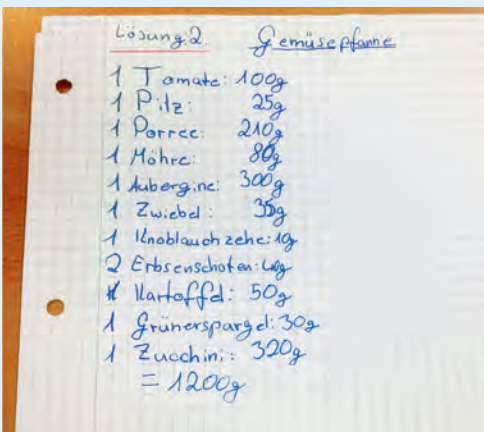 Lösung: 2. Gemüsepfanne
1 Tomate: 100g
1 Pilz: 25g
1 Porree: 210g
1 Möhre: 80g
1 Aubergine: 300g
1 Zwiebel: 35g
1 Knoblauchzehe: 1g
2 Erbsenschoten:
Kartoffel: 50g
1 Grünerspargel: 30g
1 Zucchini: 320g
= 1200g